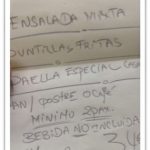 ENSALADA MIXTA
PUNTILLAS FRITAS
PAELLA ESPECIAL
PAN/POSTRE O CAFÉ
MINIMO 2 PAX.
BEBIDA NO INCLUIDA